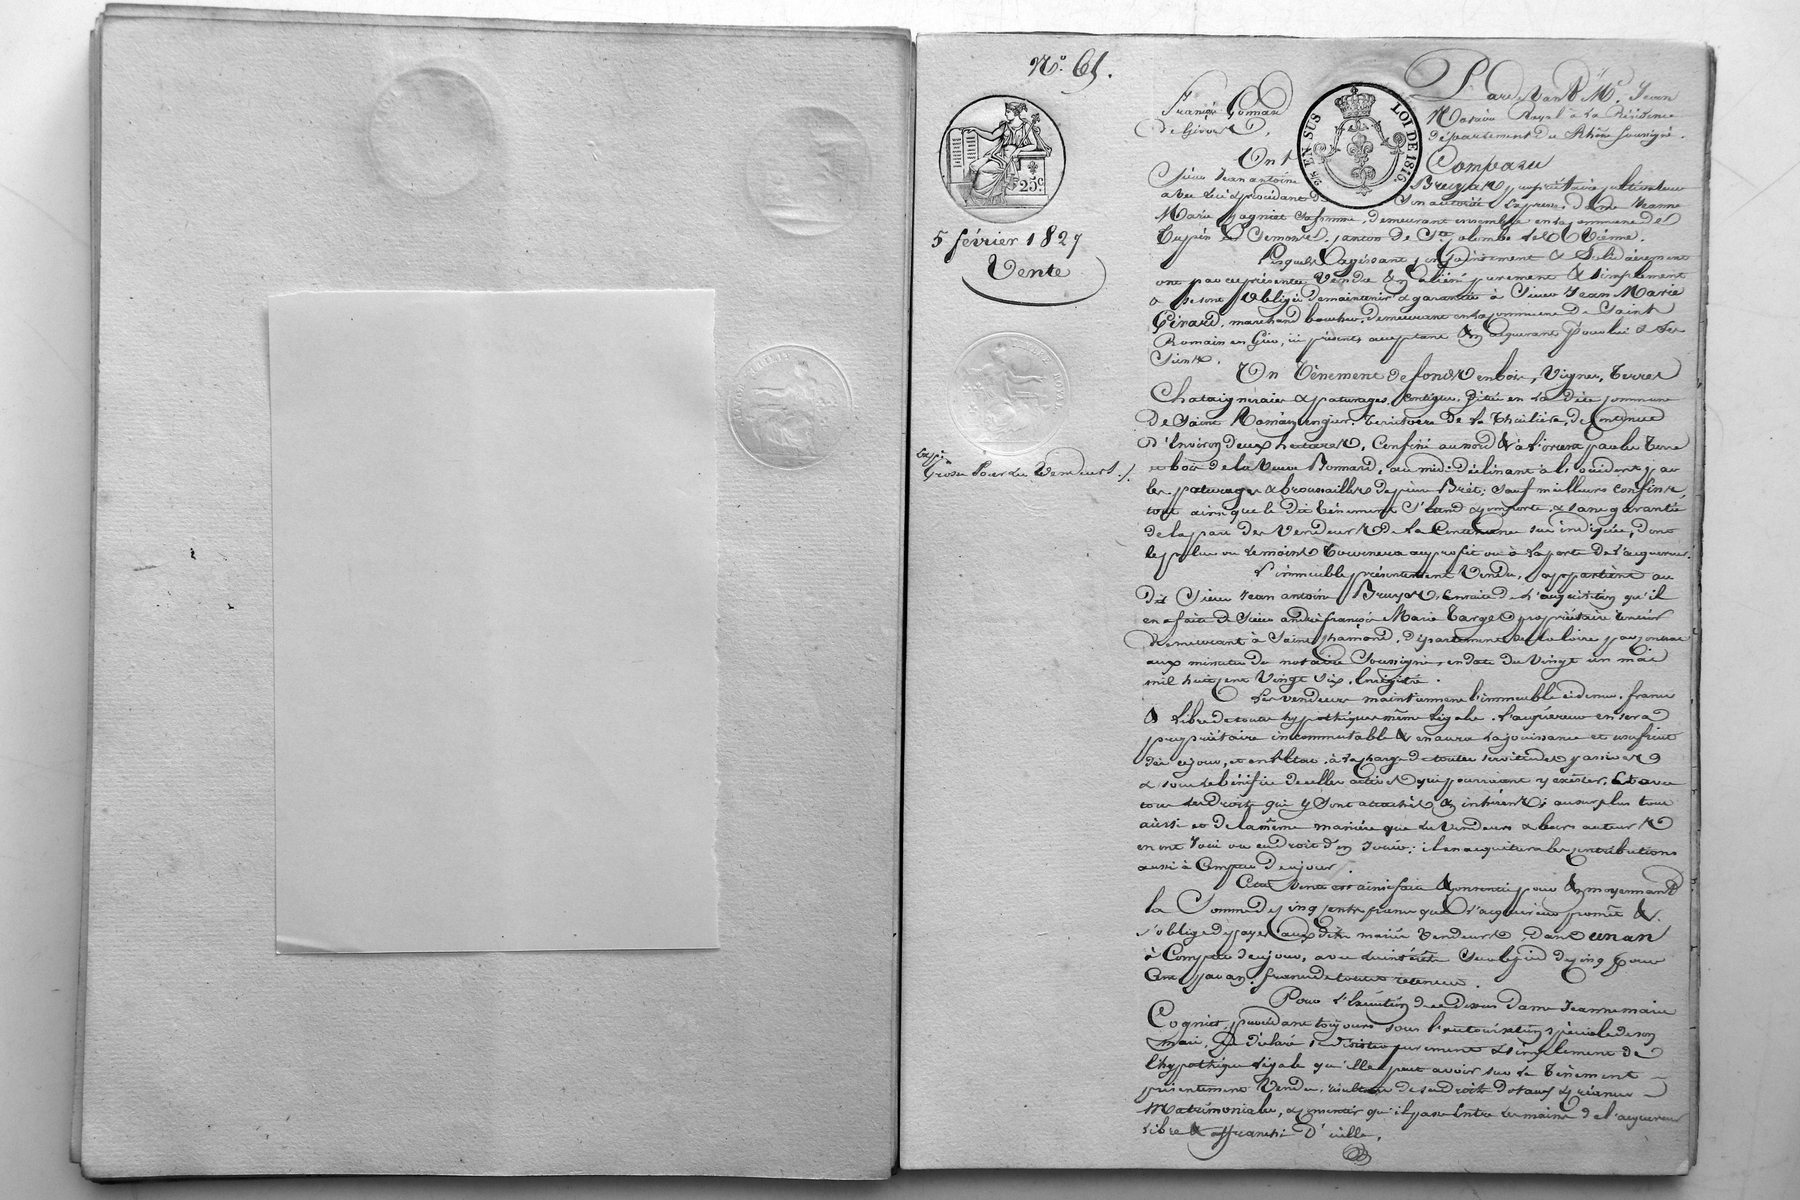 N.° 61.
25c
EN SUS
LOI DE 1816.
5 février 1827
Vente
Grosse Pour les Vendeurs
Pardevant M.e Jean
François Gonnard Notaire Royal à la Résidence
de Givors, département du Rhône soussigné.
Ont Comparu
Sieur Jean antoine Bruyas propriétaire cultivateur
avec lui procédant de son autorité expresse, dame Jeanne
Marie Cogniet sa femme, demeurant ensemble en la commune de
Tupin et Semons, canton de Ste Colombe lès Vienne.
Lesquels agissant conjointement & Solidairement
ont par ces présentes Vendu & aliéné purement & simplement
& se sont obligés de maintenir & garantir à Sieur Jean Marie
Girard, marchand boucher, demeurant en la commune de Saint
Romain en Gier, ici présent acceptant & acquérant pour lui & les
Siens.
Un Tènement de fonds en bois, Vignes, Terres
Chataigneraies & paturages, contigus, Situé en la dite commune
de Saint Romain en gier, territoire de la Thuilière, de Contenue
d'Environ deux hectares, Confiné au nord & à l'orient par les Terre
et bois de la Veuve Bonnard, au midi déclinant à l'occident par
les paturages & broussailles de pierre Brét; sauf meilleurs confins,
tout ainsi que le dit tènement S'étend & comporte, & sans garantie
de la part des Vendeurs de la Contenue sus indiquée, dont
le plus ou le moins tournera au profit ou à la perte de l'acquéreur.
L'immeuble présentement Vendu, appartient au
dit Sieur Jean antoine Bruyas, ensuite de l'acquisition qu'il
en a faite de Sieur andré françois Marie Target propriétaire rentier
demeurant à Saint Chamond, département de la loire, par contrat
aux minutes du notaire Soussigné, en date du Vingt un mai
mil huit cent Vingt Six, Enregistré.
Les vendeurs maintiennent l'immeuble ci dessus, franc
& libre de toutes hypothèques même légale. L'acquéreur en sera
propriétaire incommutable & en aura la jouissance et usufruit
dès ce jour, et en l'état, à la charge de toutes servitudes passives
& sous le bénéfice de celles actives qui pourraient y exister, Et avec
tous les droits qui y sont attachés & inhérents; au surplus tout
ainsi et de la même manière que les Vendeurs & leurs auteurs
en ont Joui ou eu droit d'en Jouir; il en acquittera les contributions
aussi à Compter de ce jour.
Cette Vente est ainsi faite & consentie pour & moyennant
la Somme de cinq cents francs que l'acquéreur promet &
s'oblige de payer aux dits mariés Vendeurs, Dans un an
à Compter de ce jour, avec les intérêts Sur le pied de cinq pour
Cent par an, francs de toutes retenues.
Pour l'Exécution des dessus Dame Jeanne marie
Cogniet, procédant toujours sous l'autorisation spéciale de son
mari, a déclaré se désister purement & simplement de
l'hypothèque légale qu'elle peut avoir sur le Tènement
présentement Vendu, résultant de ses droits dotaux & créances
Matrimoniales, & consentir qu'il passe Entre les mains de l'acquéreur
libre & affranchi D'icelle.